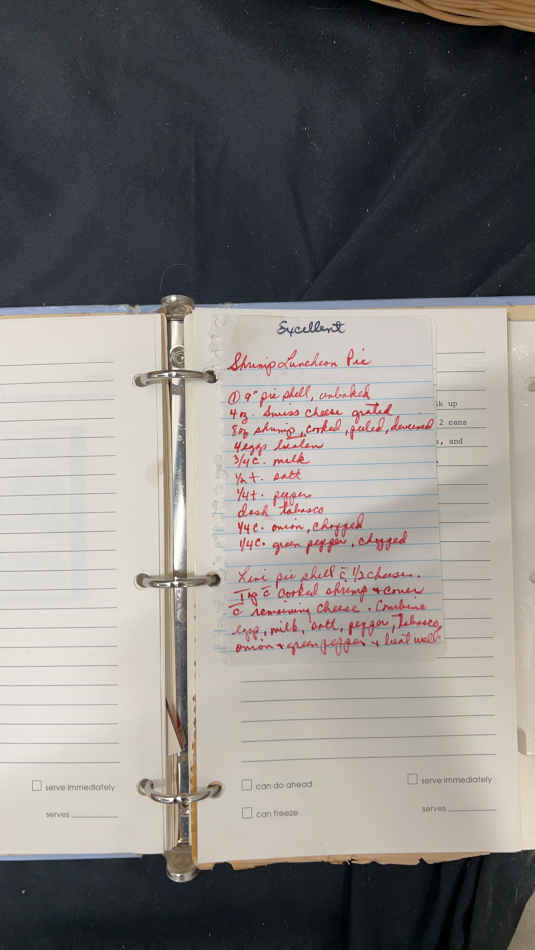 Excellent
Shrimp Luncheon Pie
① 9" pie shell, unbaked
4 oz. Swiss cheese grated
8 oz shrimp, cooked, peeled, deveined
4 eggs beaten
3/4 c. milk
1/2 t. salt
1/4 t. pepper
dash tabasco
1/4 c. onion, chopped
1/4 c. green pepper, chopped
Line pie shell c̄ 1/2 cheese.
Top c̄ cooked shrimp & cover
c̄ remaining cheese. Combine
egg, milk, salt, pepper, Tabasco,
onion & green pepper & beat well
up
2 cans
, and
serve immediately
serves
can do ahead
serve immediately
can freeze
serves